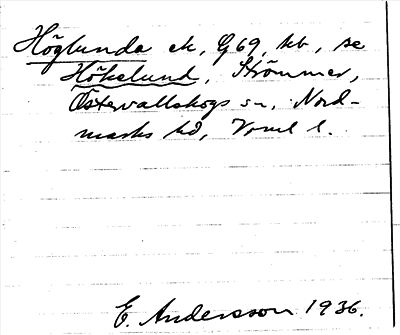 Höglunda ek, G69, kb, se
Hökelund, Strömmer,
Östervallskogs sn, Nord-
marks hd, Vrml l.
E. Andersson 1936.